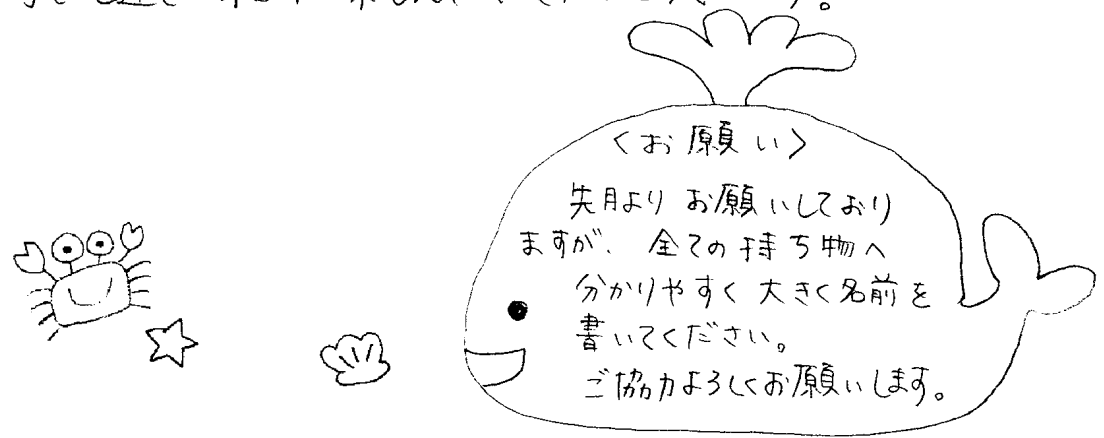 〈お願い〉
先月より お願いしており
ますが、全ての持ち物へ
分かりやすく 大きく名前を
書いてください。
ご協力よろしくお願いします。